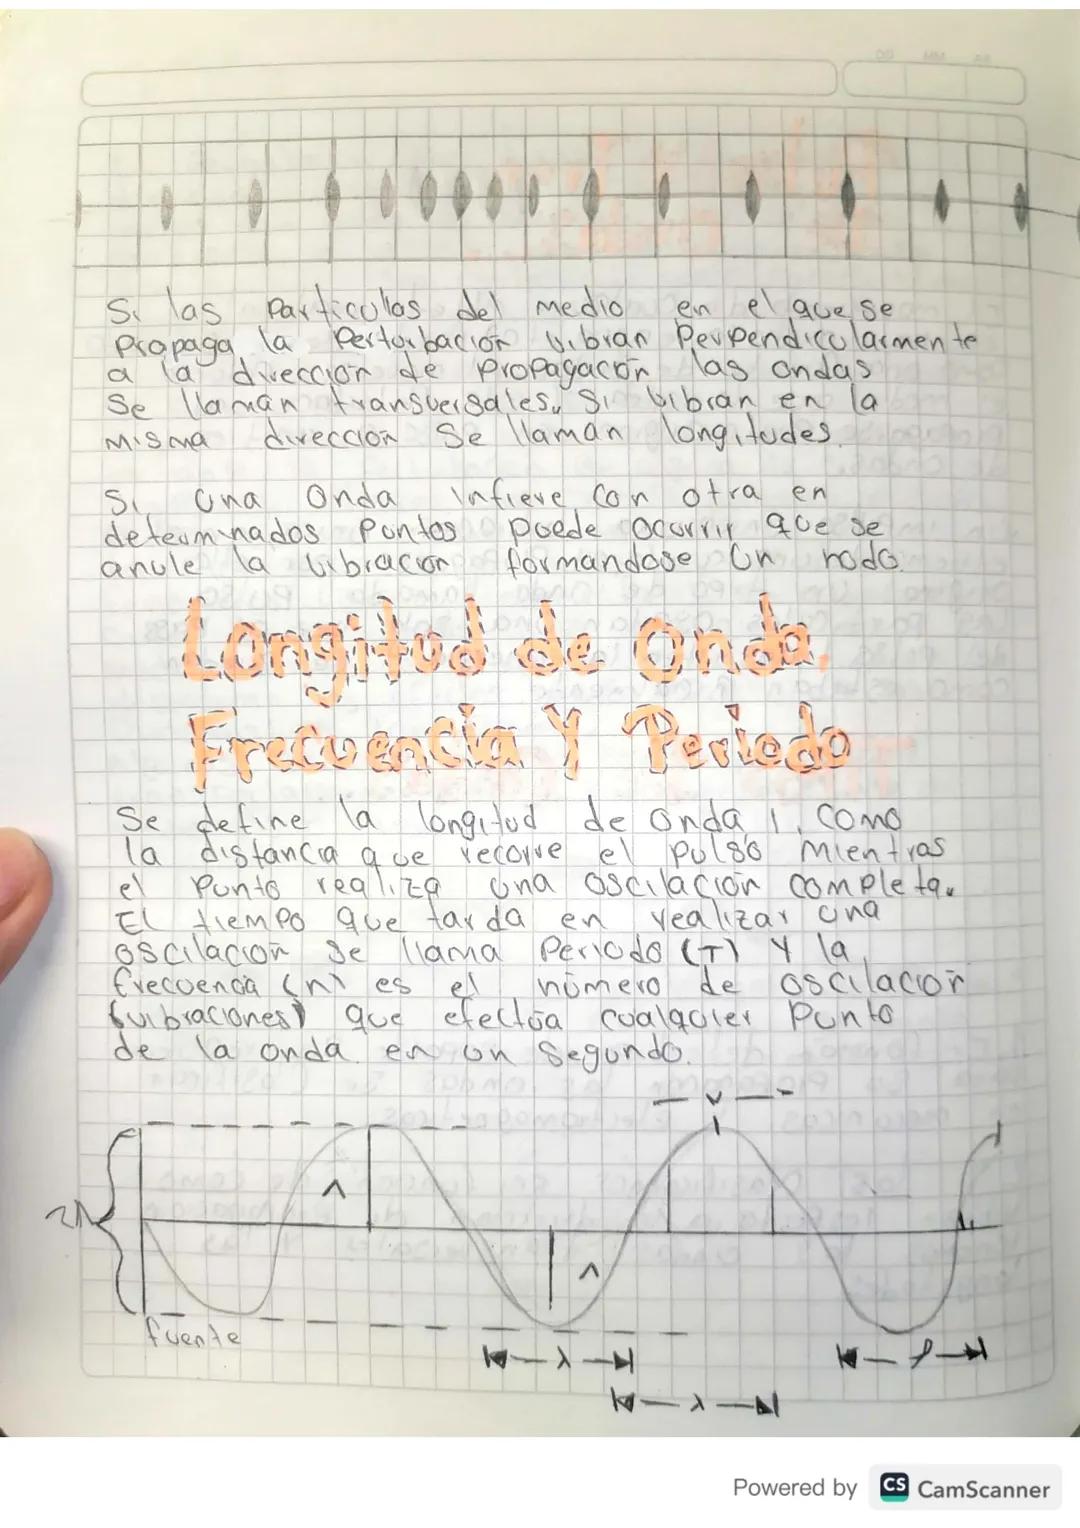 Si las Particulas del medio en el que se
Propaga la Perturbación vibran Perpendicularmente
a la dirección de Propagación las ondas
Se llaman transversales, Si vibran en la
Misma dirección Se llaman longitudes.
Si una Onda Infiere Con otra en
determinados Puntos Puede Ocurrir que se
anule la vibración formandose Un nodo.
Longitud de Onda,
Frecuencia Y Periodo
Se define la longitud de onda l, Como
la distancia que recorre el Pulso Mientras
el Punto realiza una oscilación Completa.
El tiempo que tarda en realizar una
oscilación Se llama Periodo (T) Y la
frecuencia (n) es el número de oscilación
(vibraciones) que efectúa cualquier Punto
de la onda en un Segundo.
v
2A
fuente
λ
λ